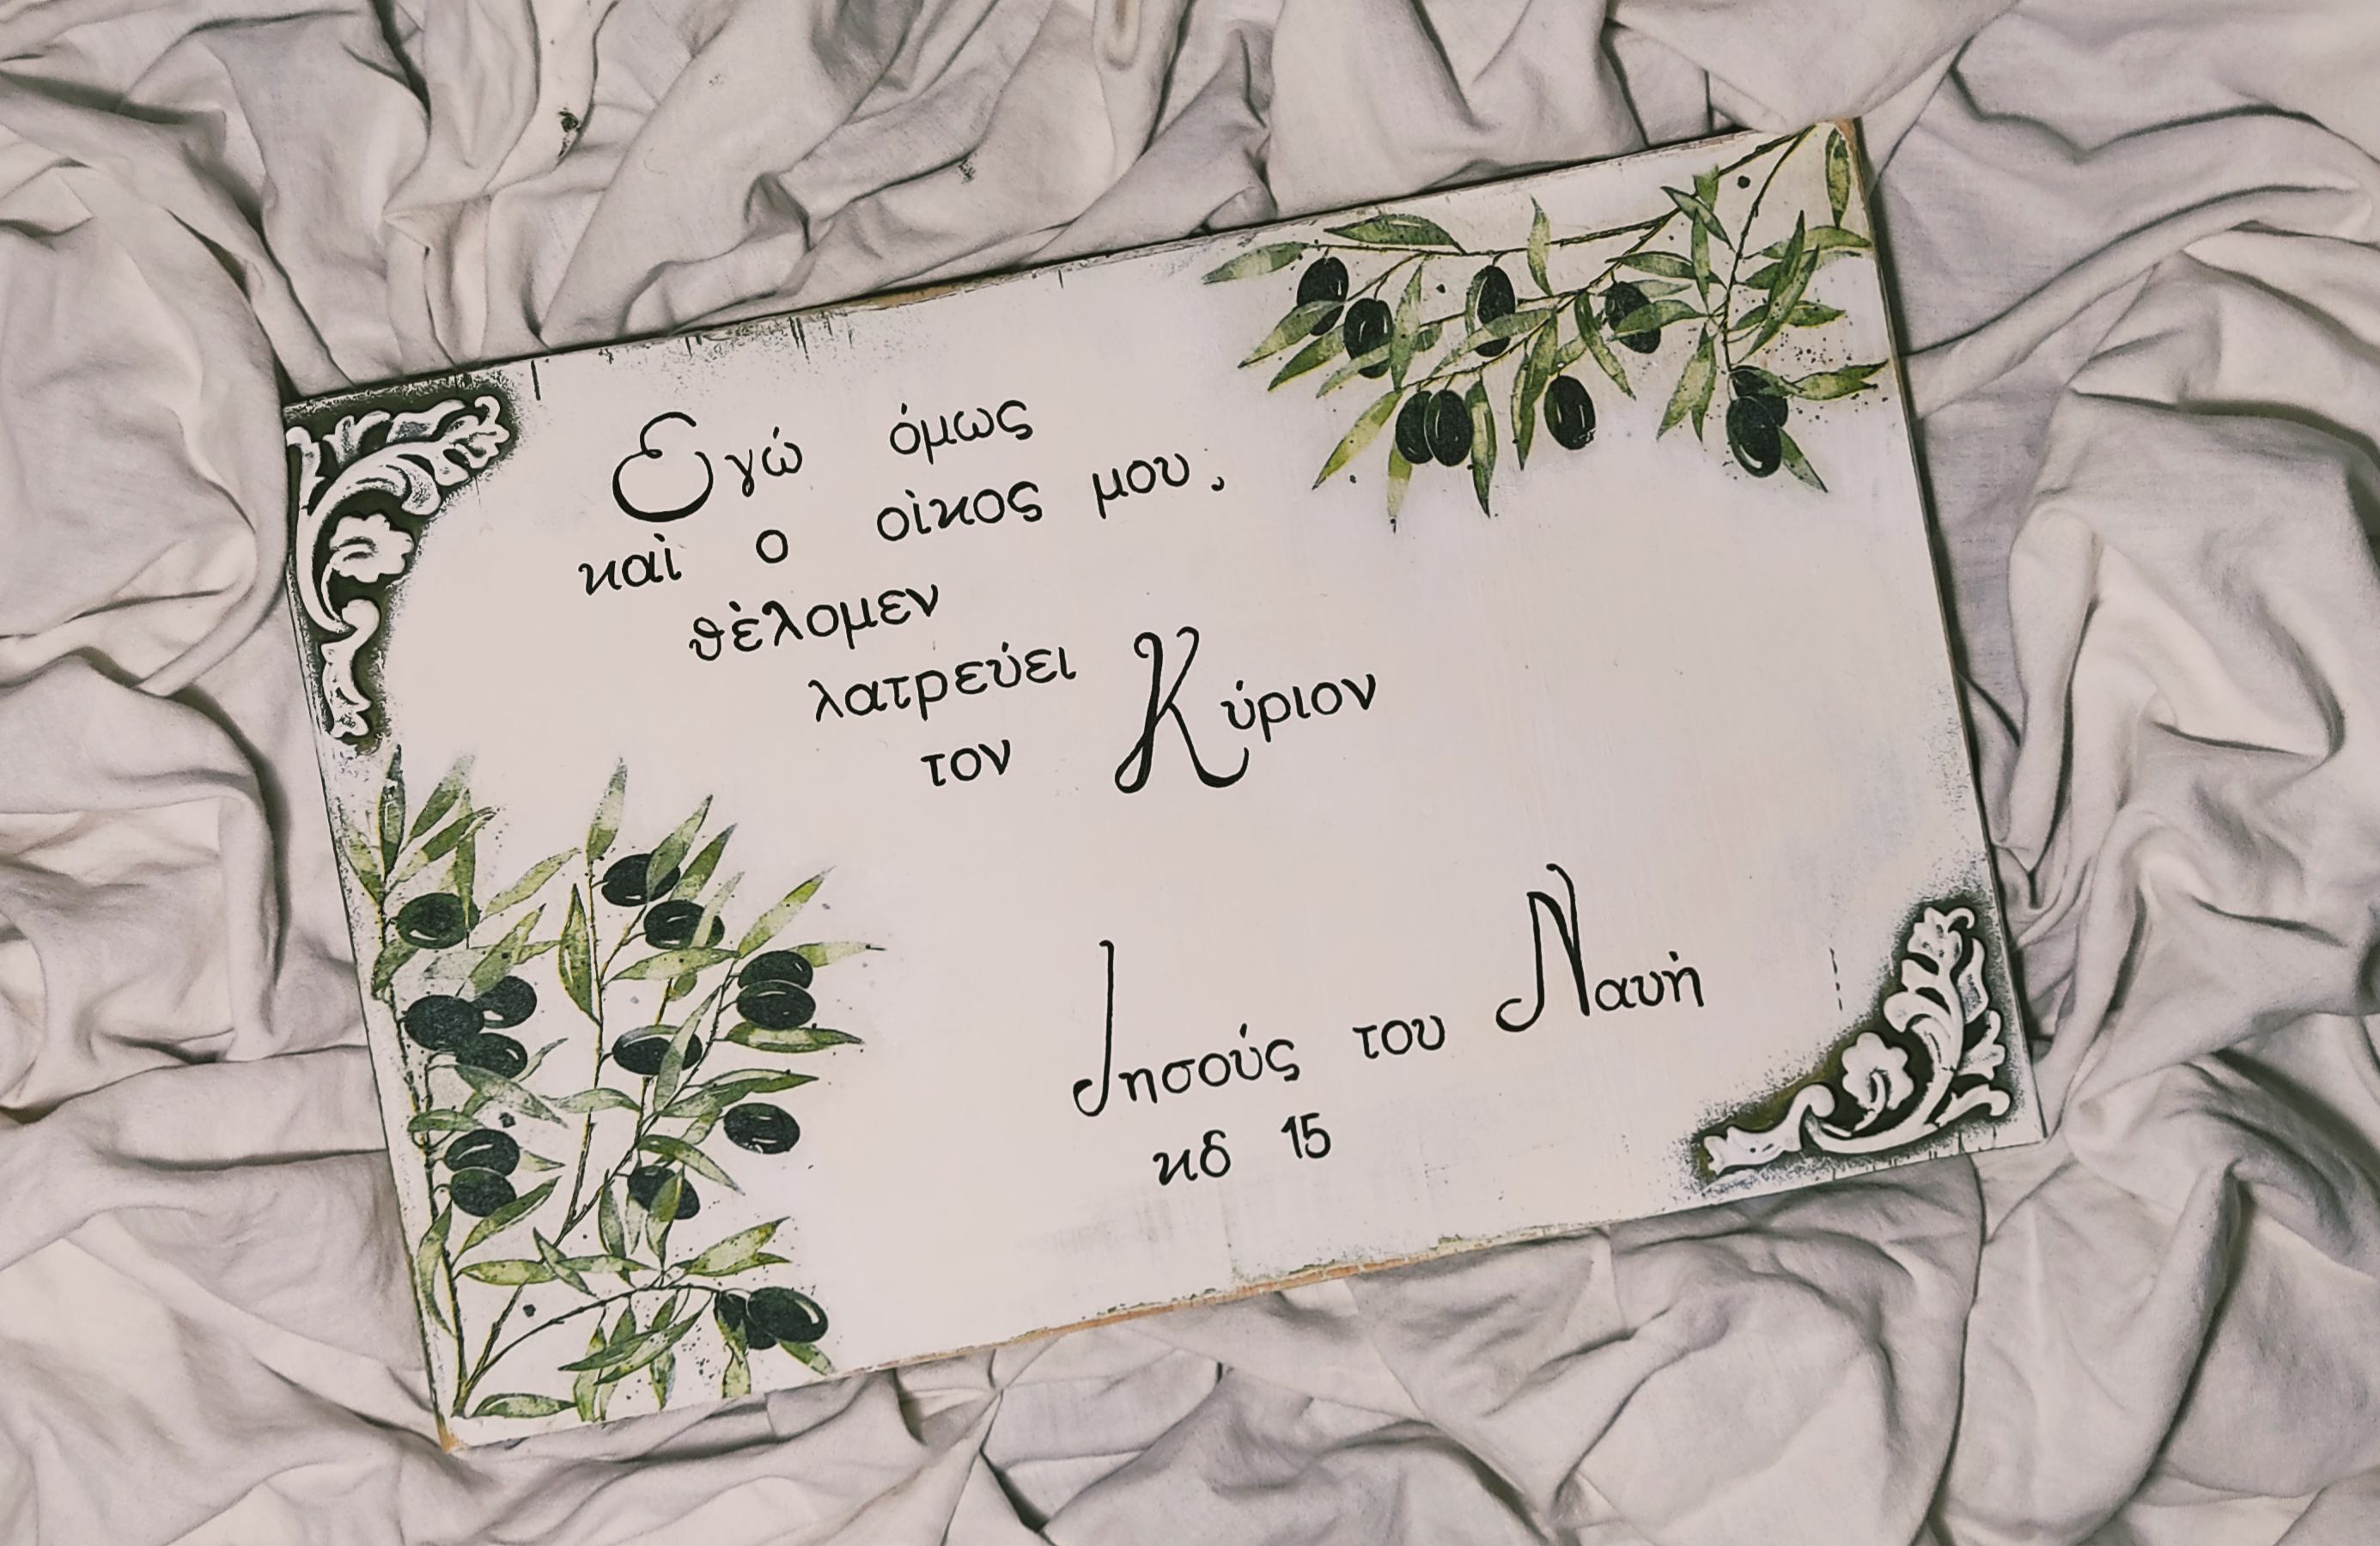 Εγώ όμως
καὶ ο οἰκος μου,
θὲλομεν
λατρεύει
τον Κύριον
Ιησούς του Ναυὴ
κδ 15